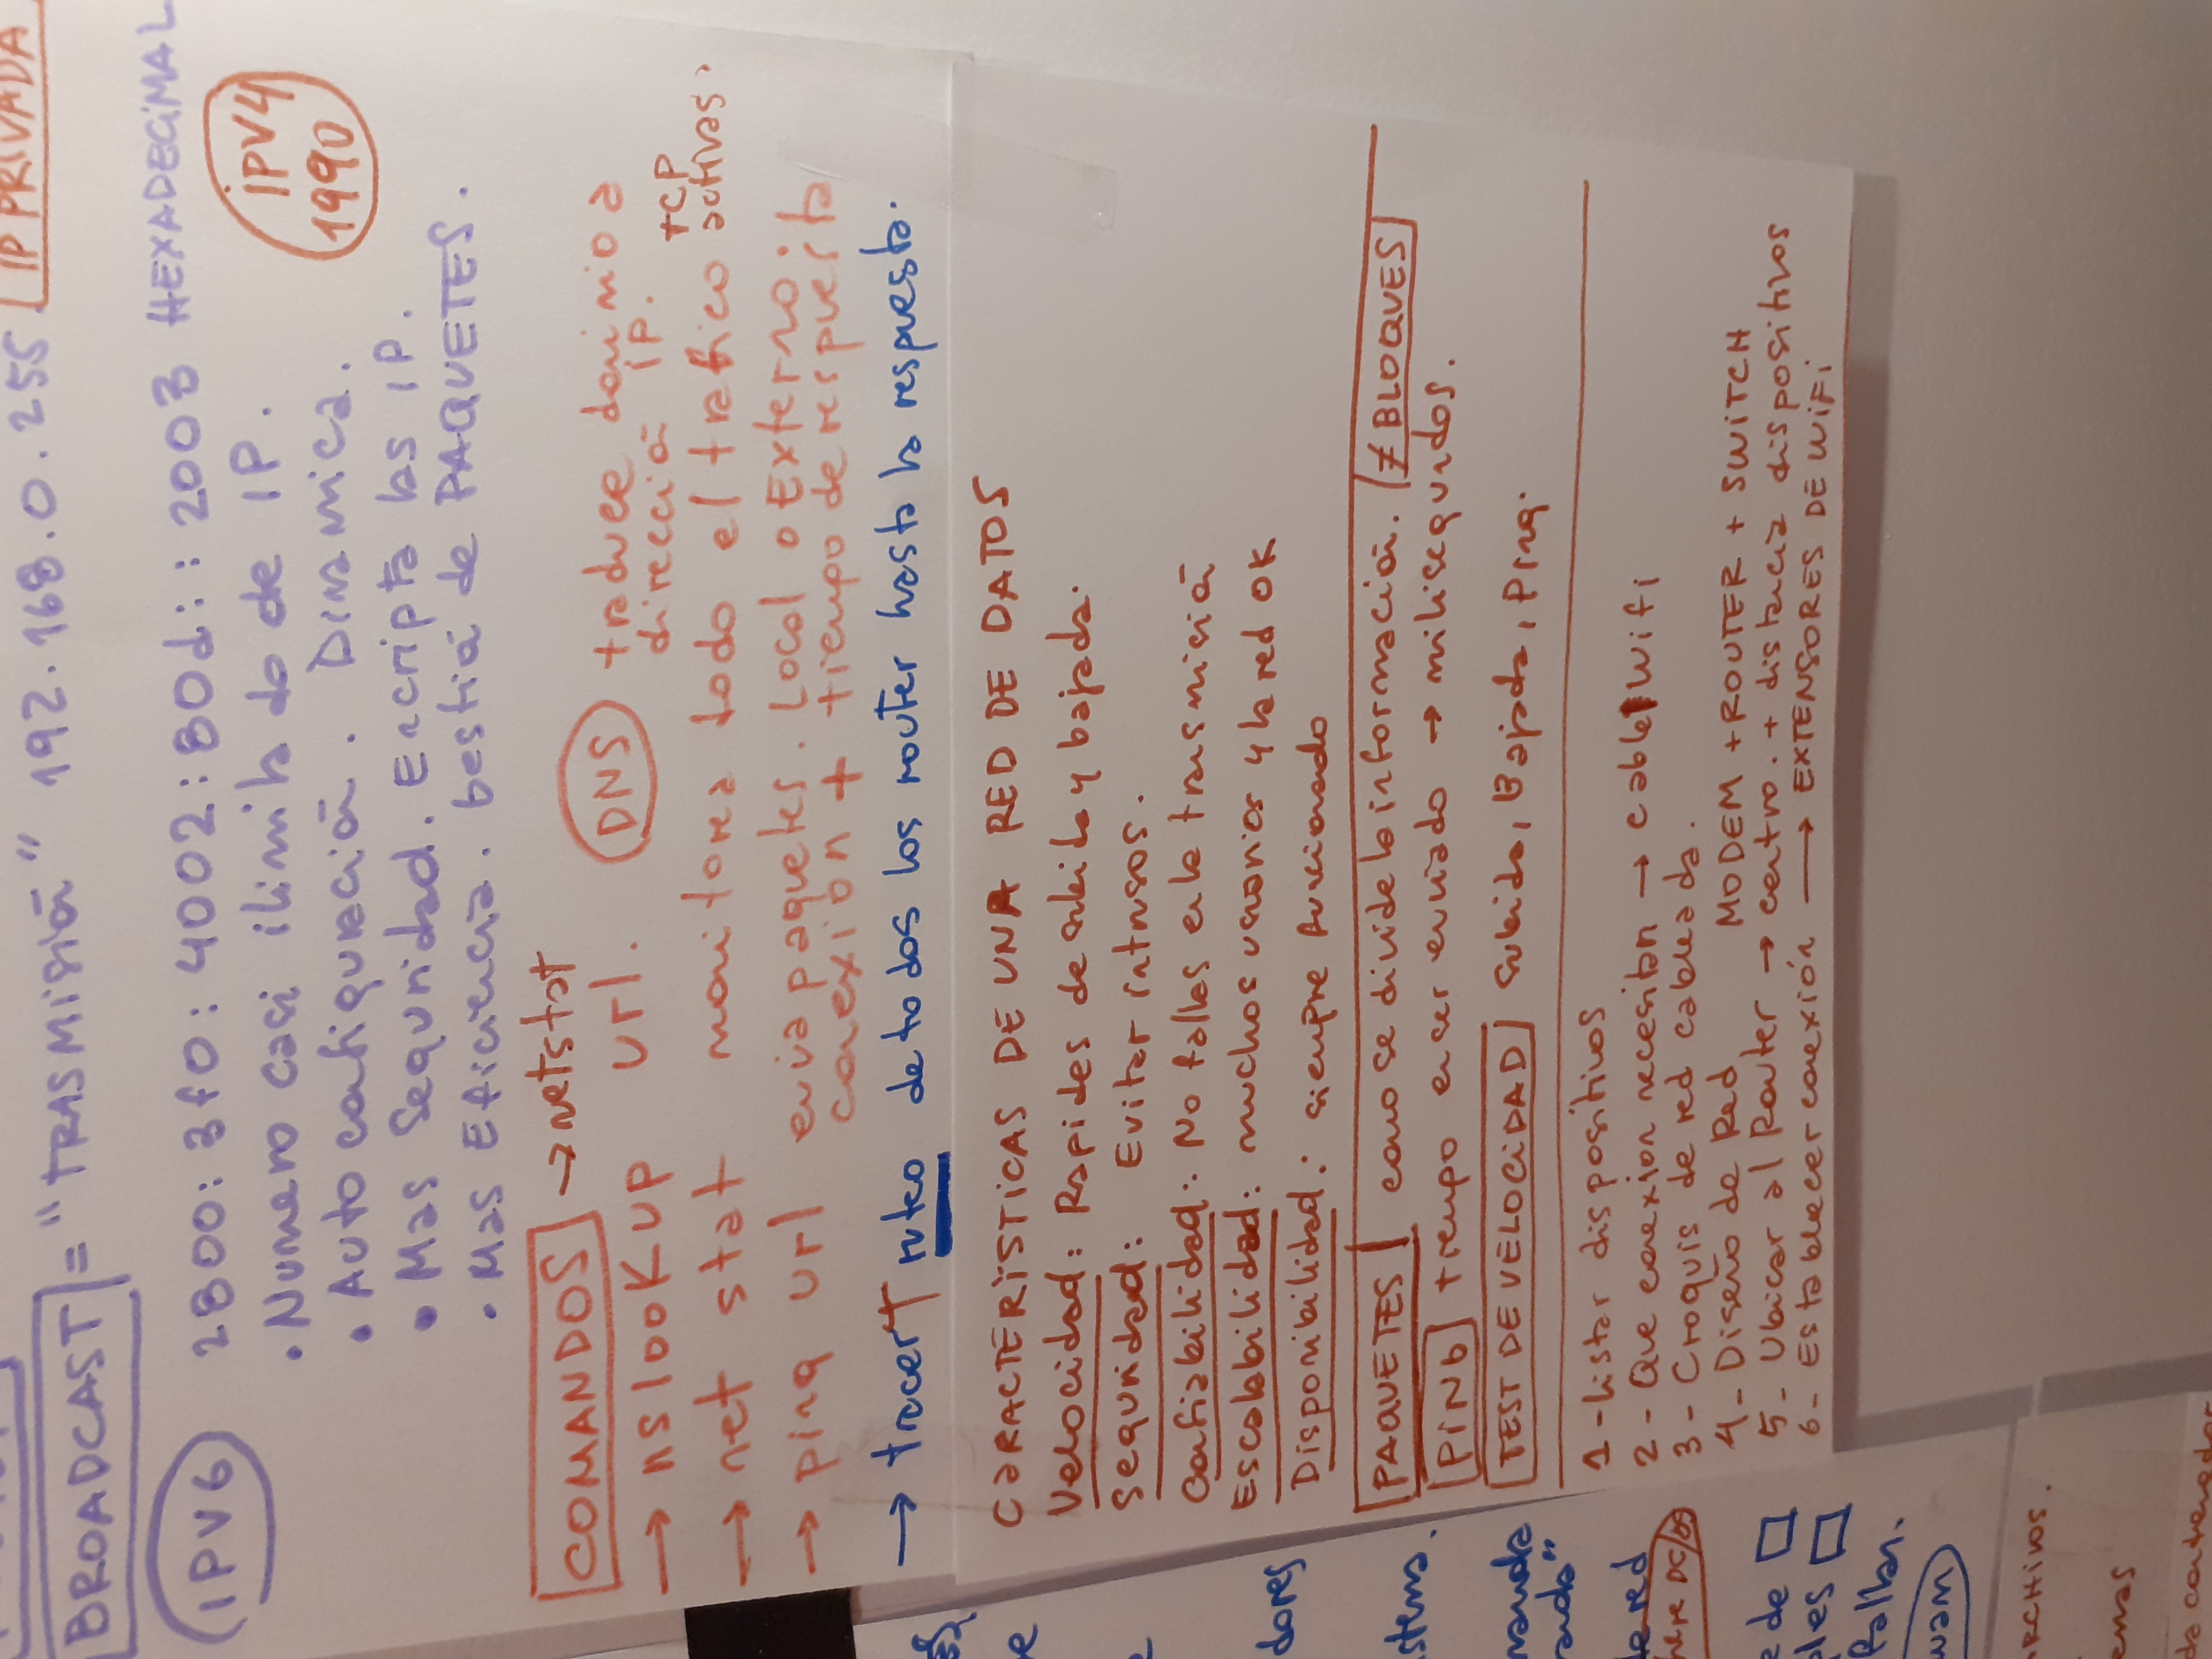 BROADCAST = "TRASMisiõ" 192.168.0.255. IP PRIVADA
iPV6 2800:3f0:4002:80d::2003 HEXADECiMAL
• Numero casi ilimitado de IP.
iPV4
1990
• Auto cofiguració. Dinamica.
• Mas Seguridad. Encripta las IP.
• Mas Eficiencia. Gestió de PAQUETES.
COMANDOS → netstat
→ nslookup url. DNS traduce dominio a
dirección iP.
→ net stat monitorea todo el trafico TCP
activas.
→ ping url envia paquetes. Local o Externo.
conexión + tiempo de respuesta
→ tracerT ruteo de todos los router hasta la respuesta.
CaRACTERíSTiCAS DE UNA RED DE DATOS
Velocidad: Rapides de subida y bajada.
Seguridad: Evitar intrusos.
Confiabilidad: No fallas en la transmisió
Escalabilidad: muchos usuarios y la red OK
Disponibilidad: siempre funcionado
PAQUETES como se divide la información. ≠ BLOQUES
PiNG tiempo en ser enviado → milisegundos.
TEST DE VELOCiDAD Subida, Bajada, Ping.
1 - Listar dispositivos
2 - Que conexion necesitan → cable/Wifi
3 - Croquis de red cableada.
4 - Diseño de Red MODEM + ROUTER + SWiTCH
5 - Ubicar al Router → centro. + distancia dispositivos
6 - Establecer conexión → EXTENSORES DE WiFi
dores
stema.
de red
e de
ples
fallan.
wan
ARCHivos.
emas
da contenedor